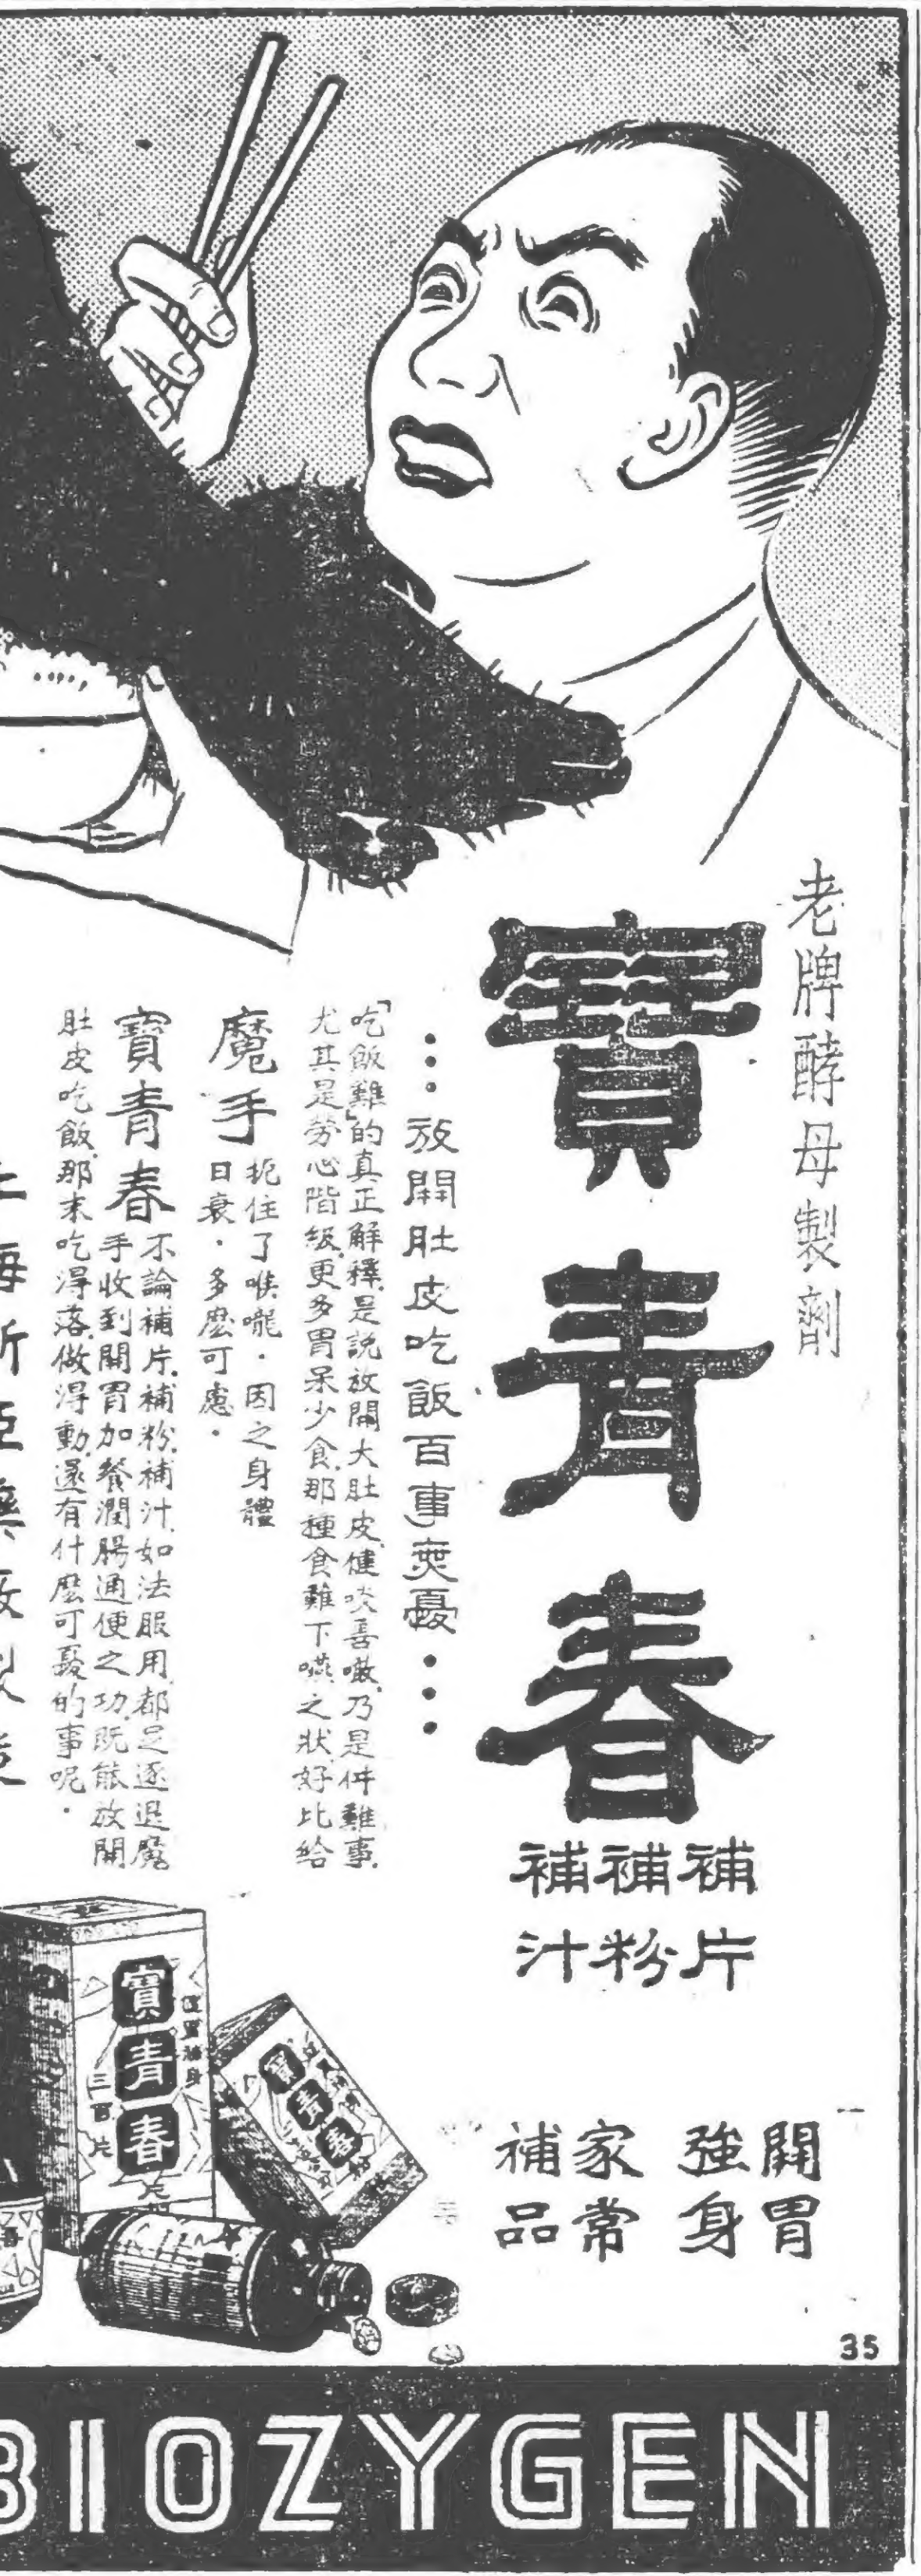 老牌酵母製劑
寶青春
補片
補粉
補汁
開胃
強身
家常
補品
···放開肚皮吃飯百事無憂···
「吃飯難」的真正解釋,是說放開大肚皮,健啖喜噉,乃是件難事,
尤其是勞心階級,更多胃呆少食,那種食難下嚥之狀,好比給
魔手
扼住了喉嚨·因之身體
日衰·多麼可慮·
寶青春
不論補片,補粉,補汁,如法服用,都足逐退魔
手收到開胃加餐潤腸通便之功,既能放開
肚皮吃飯,那末吃得落,做得動,還有什麼可憂的事呢·
寶青春
三百片
寶青春
35
BIOZYGEN